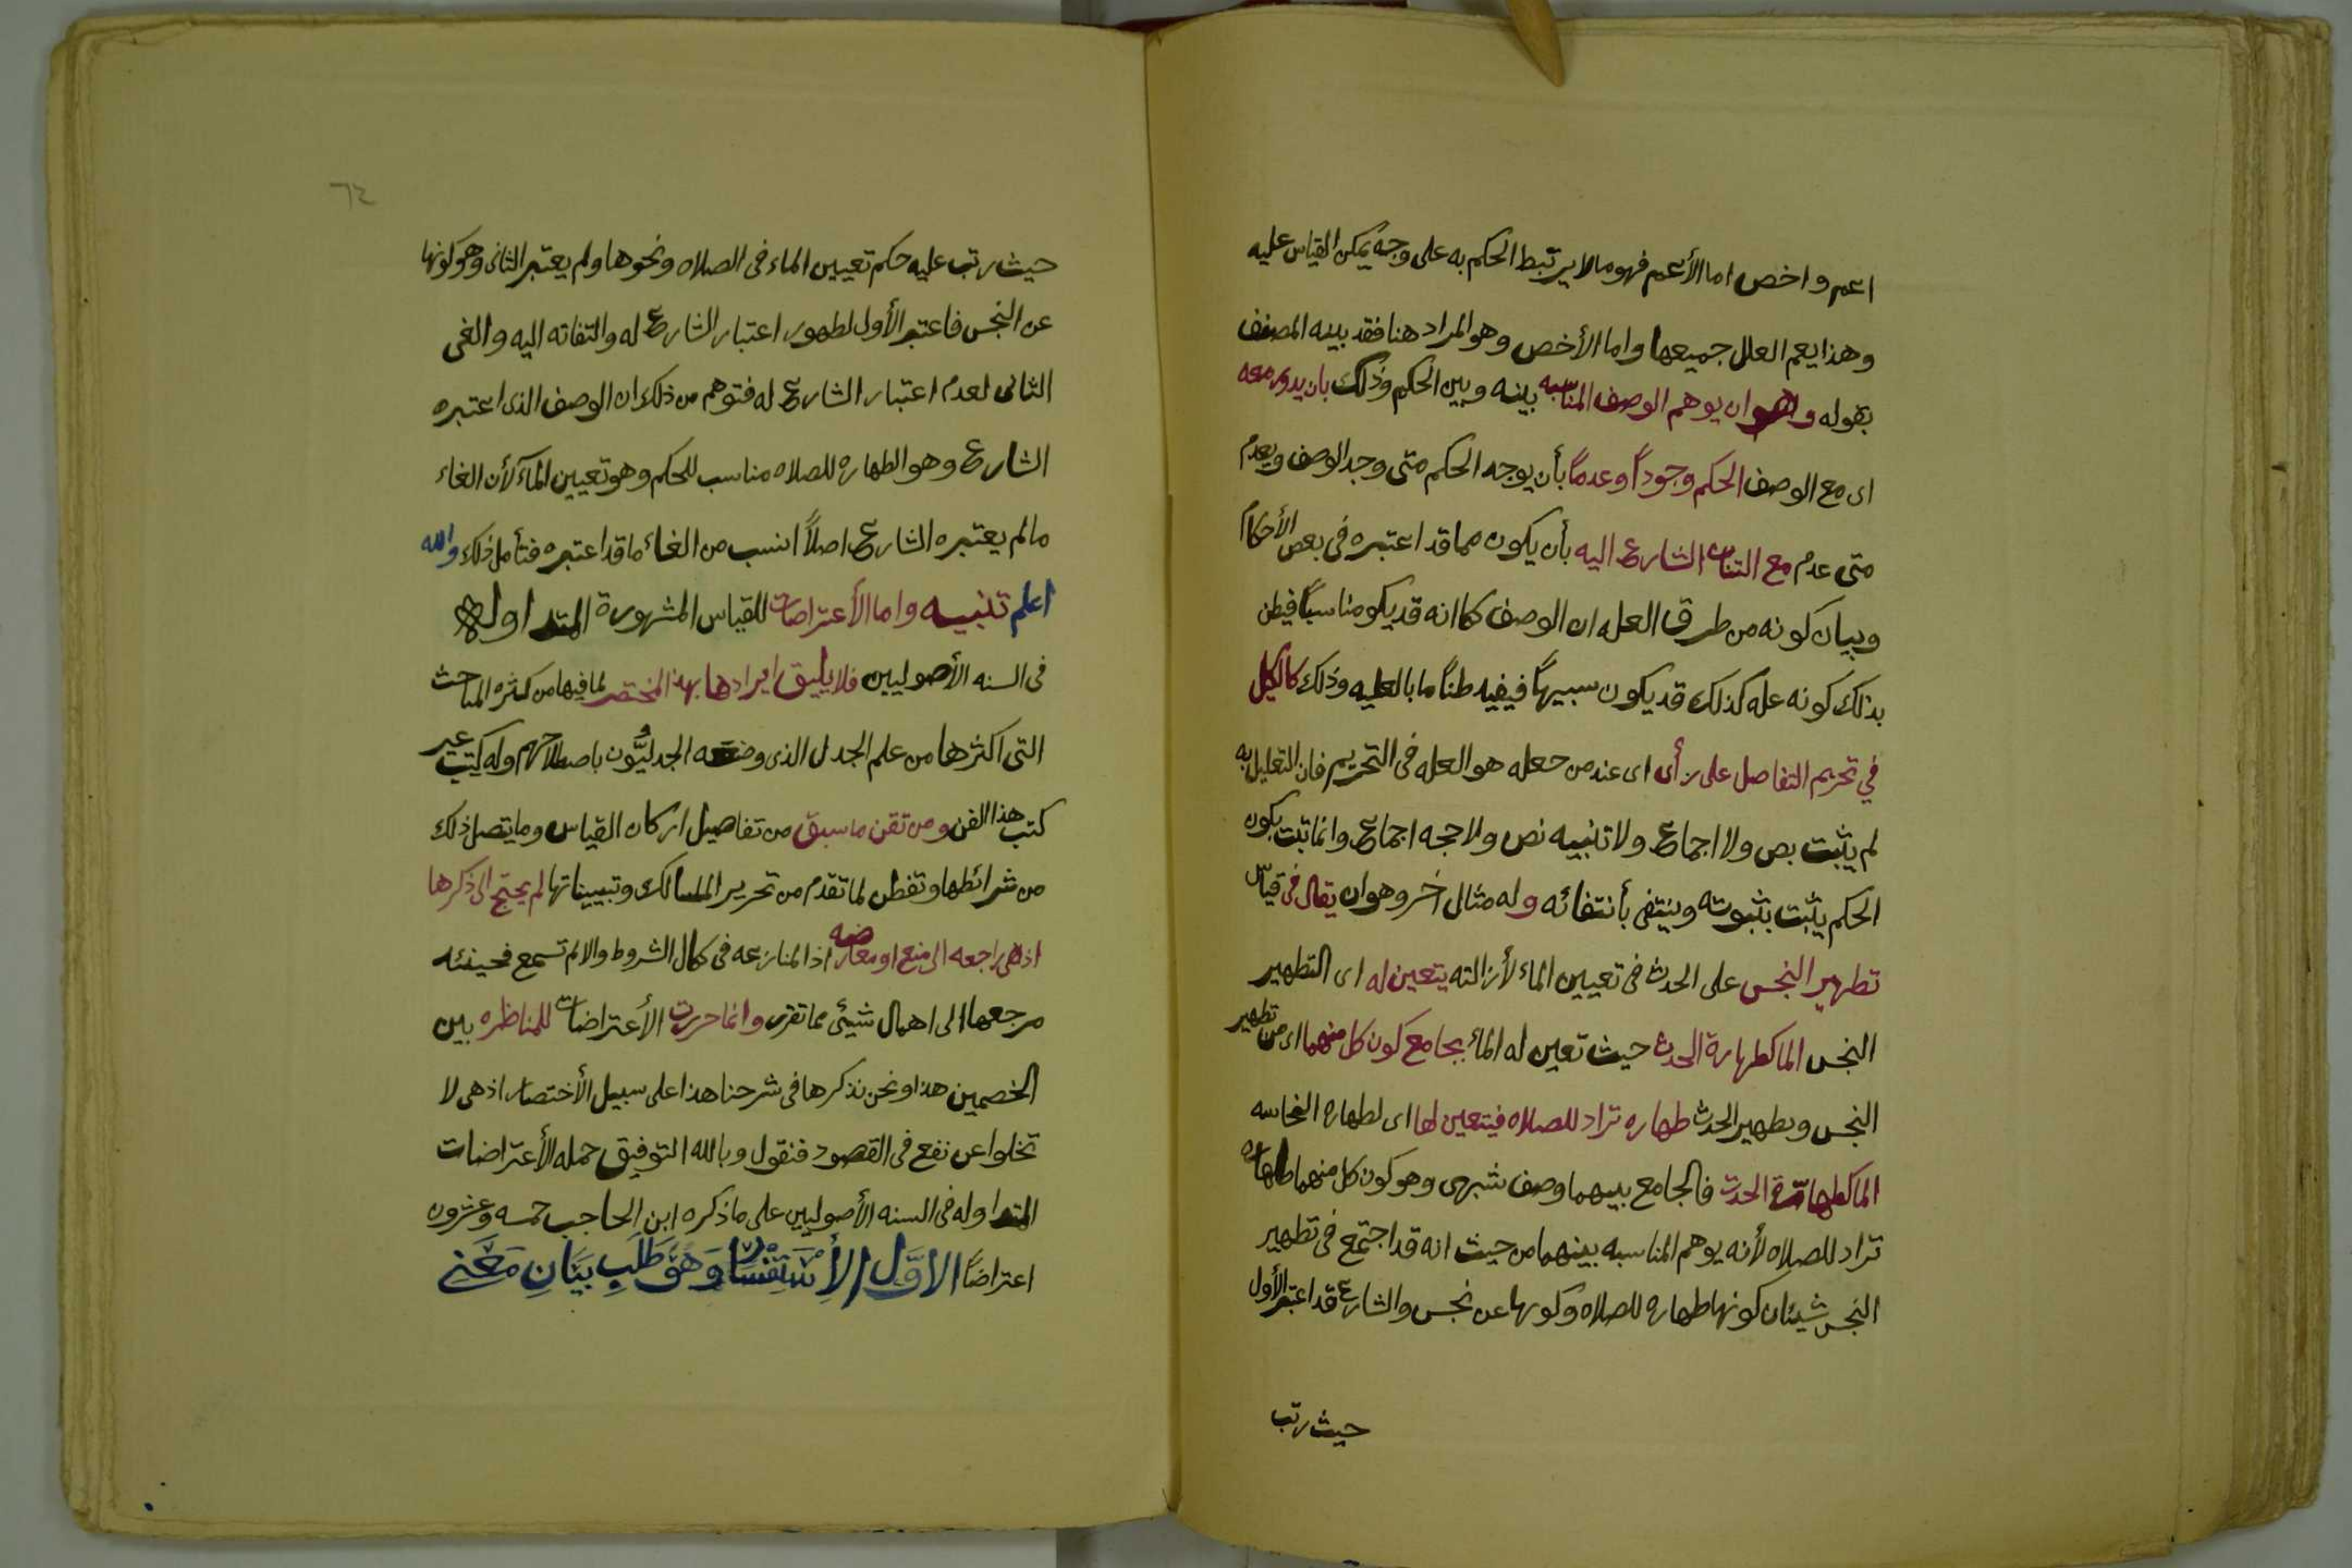 اعم واخص اما الأعم فهو مالا يرتبط الحكم به على وجه يمكن القياس عليه
وهذا يعم العلل جميعها واما الأخص وهو المراد هنا فقد بينه المصنف
بقوله وهو ان يوهم الوصف المناسبه بينه وبين الحكم وذلك بان يدور معه
اى مع الوصف الحكم وجوداً وعدماً بأن يوجد الحكم متى وجد الوصف ويعدم
متى عدم مع التفات الشارع اليه بأن يكون مما قد اعتبره فى بعض الأحكام
وبيان كونه من طرق العله ان الوصف كما انه قد يكو مناسباً فيظن
بذلك كونه عله كذلك قد يكون شبيهاً فيفيد ظناً ما بالعليه وذلك كالكيل
في تحريم التفاصل على رأى اى عند من جعله هو العله فى التحريم فان التعليل به
لم يثبت بص ولا اجماع ولا تنبيه نص ولا حجه اجماع وانما ثبت بكون
الحكم يثبت بثبوته وينتفى بأنتفائه وله مثال آخر وهو ان يقال فى قياس
تطهير النجس على الحدث فى تعيين الماء لأزالته يتعين له اى التطهير
النجس الما كطهارة الحدث حيث تعين له الماء بجامع كون كل منهما اى من تطهير
النجس وتطهير الحدث طهاره تراد للصلاه فيتعين لها اى لطهاره النجاسه
الما كطهارة الحدث فالجامع بينهما وصف شبهى وهو كون كل منهما طهاره
تراد للصلاه لأنه يوهم المناسبه بينهما من حيث انه قد اجتمع فى تطهير
النجس شيئان كونها طهاره للصلاه وكونها عن نجس والشارع قد اعتبر الأول
حيث رتب
٦٤
حيث رتب عليه حكم تعيين الماء فى الصلاه ونحوها ولم يعتبر الثانى وهو كونها
عن النجس فاعتبر الأول لظهور اعتبار الشارع له والتفاته اليه والغى
الثانى لعدم اعتبار الشارع له فتوهم من ذلك ان الوصف الذى اعتبره
الشارع وهو الطهاره للصلاه مناسب للحكم وهو تعيين الماء لأن الغاء
مالم يعتبره الشارع اصلاً انسب من الغاء ما قد اعتبره فتأمل ذلك والله
اعلم تنبيه واما الأعتراضات للقياس المشهورة المتداوله
فى السنه الأصوليين فلا يليق ايرادها بهذا المختصر لما فيها من كثره المباحث
التى اكثرها من علم الجدل الذى وضعه الجدليُّون باصطلاحهم وله كتب غير
كتب هذا الفن ومن تقن ما سبق من تفاصيل اركان القياس وما يتصل ذلك
من شرائطها وتفطن لما تقدم من تحرير المسالك وتبييناتها لم يحتج الى ذكرها
اذ هى راجعه الى منع او معارضه اذ المنازعه فى كمال الشروط والا لم تسمع فحينئه
مرجعها الى اهمال شيئى مما تقرر وانما حررت الأعتراضات للمناظره بين
الخصمين هذا ونحن نذكرها فى شرحنا هذا على سبيل الأختصار اذ هى لا
تخلوا عن نفع فى القصود فنقول وبالله التوفيق جمله الأعتراضات
المتداوله فى السنه الأصوليين على ما ذكره ابن الحاجب خمسه وعشرون
اعتراضاً الاوَّل الأِسْتِفْسَارُ وَهُوَ طَلَبِ بَيَانِ مَعْنى